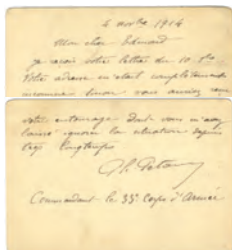 4 novbre 1914
Mon cher Edmond
je reçois votre lettre du 10 7bre
Votre adresse m'était complètement
inconnue sinon vous auriez reçu
votre entourage dont vous m'avez
laissé ignorer la situation depuis
trop longtemps
Ph. Pétain
Commandant le 33e Corps d'Armée